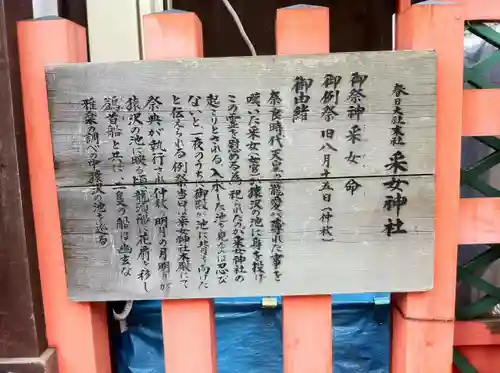 春日大社末社 采女神社
御祭神 采女命
御例祭 旧八月十五日(仲秋)
御由緒
奈良時代、天皇の寵愛が薄れた事を
嘆いた采女(女官)が猿沢の池に身を投げ
この霊を慰める為、祀られたのが采女神社の
起こりとされる。入水した池を見るのは忍び
ないと一夜のうちに御殿が池に背を向けた
と伝えられる。例祭当日は采女神社本殿にて
祭典が執行され、仲秋の明月の月明りが
猿沢の池に映る頃、龍頭船に花扇を移し
鷁首船と共に、二隻の船は幽玄な
雅楽の調べの中、猿沢の池を巡る